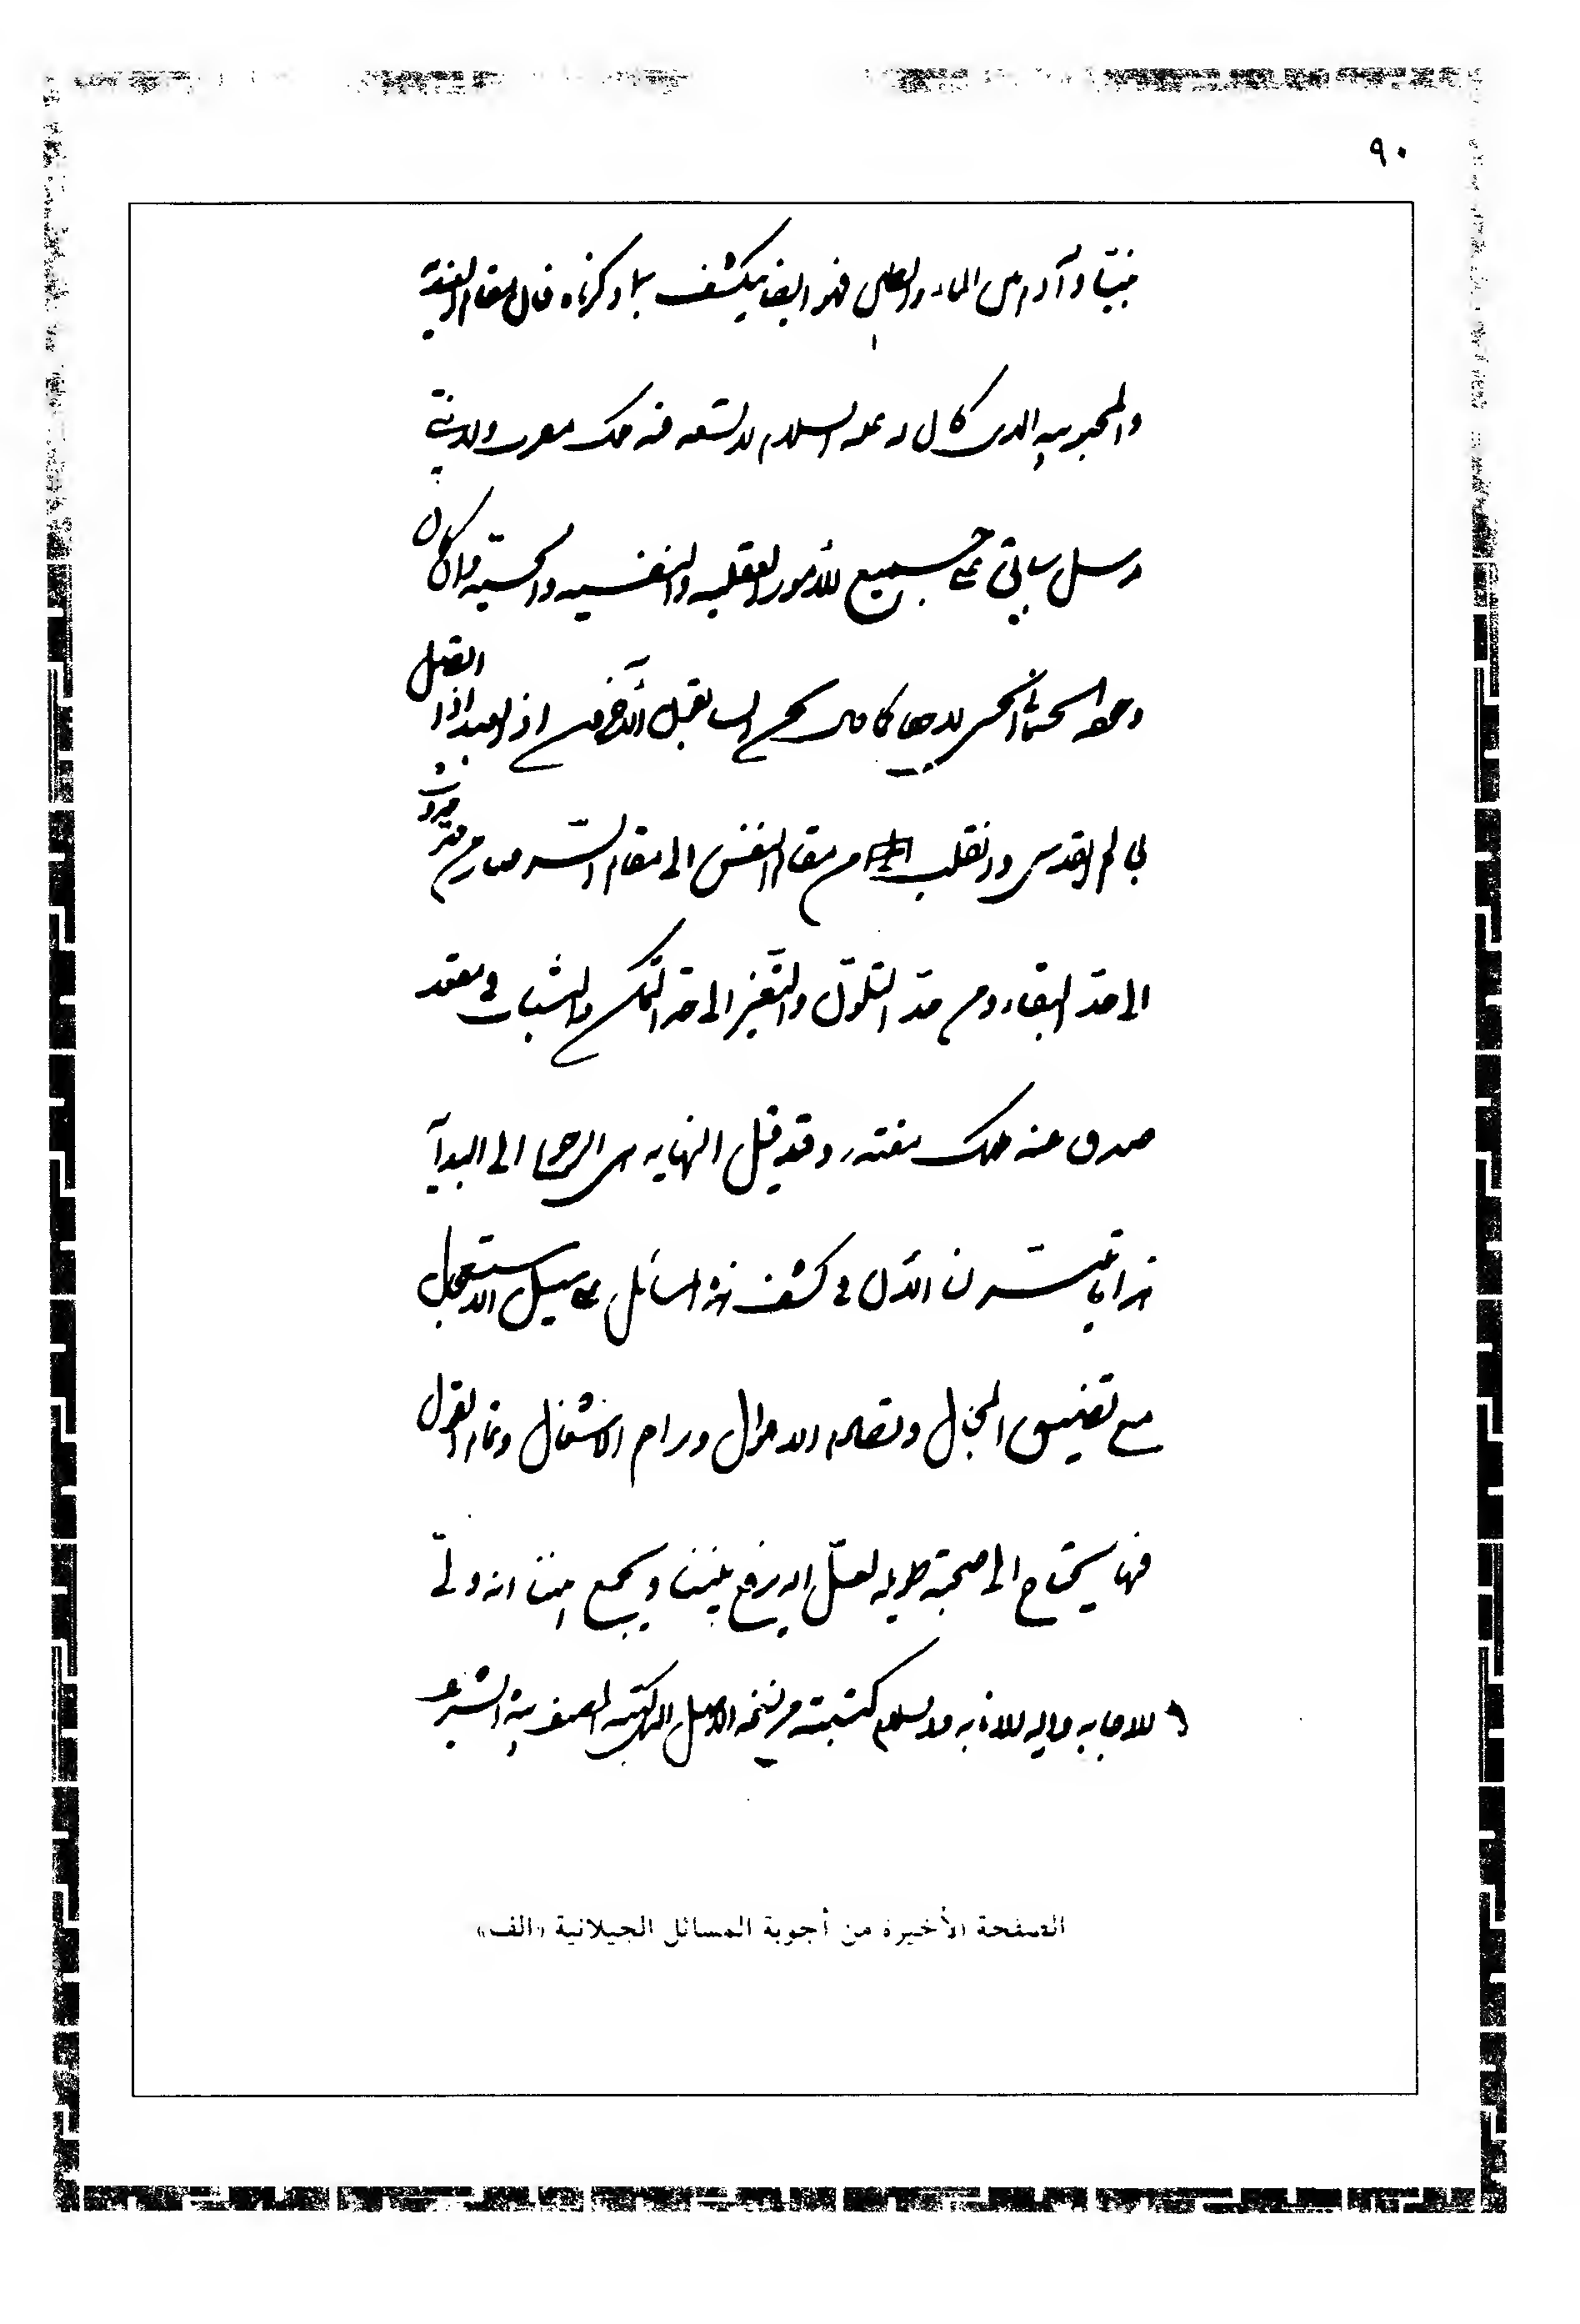 ٩٠
نبيّا وآدم بين الماء والطين فهو ايضا ينكشف بما ذكرناه فان مقام العندية
والمحبوبية الذى كان له عليه السلام لا يسعه فيه ملك مقرب ولا نبي
مرسل سابق على جميع الأمور العقلية والنفسية والحسية
اذ العبد اذا اتصل
بالم القدس وانقلب من مقام النفس الى مقام السر صار من
الى حد البقاء ومن حد التلوّن والتغيّر الى حد التمكن والثبات في مقعد
صدق عند مليك مقتدر وقد قيل النهاية هى الرجوع الى البداية
هذا ما تيسر لنا الآن في كشف هذه المسائل على سبيل الاستعجال
مع تضييق المجال وتصادم الاحوال وتراحم الاشغال وتمام القول
فيها يحتاج الى صحبة طويلة لعل الله يرفع بيننا ويجمع بيننا انه ولى
الاجابة واليه الانابة والسلام كتبته من نسخة الاصل التى كتبه المصنف بيده الشريف
الصفحة الأخيرة من أجوبة المسائل الجيلانية «الف»